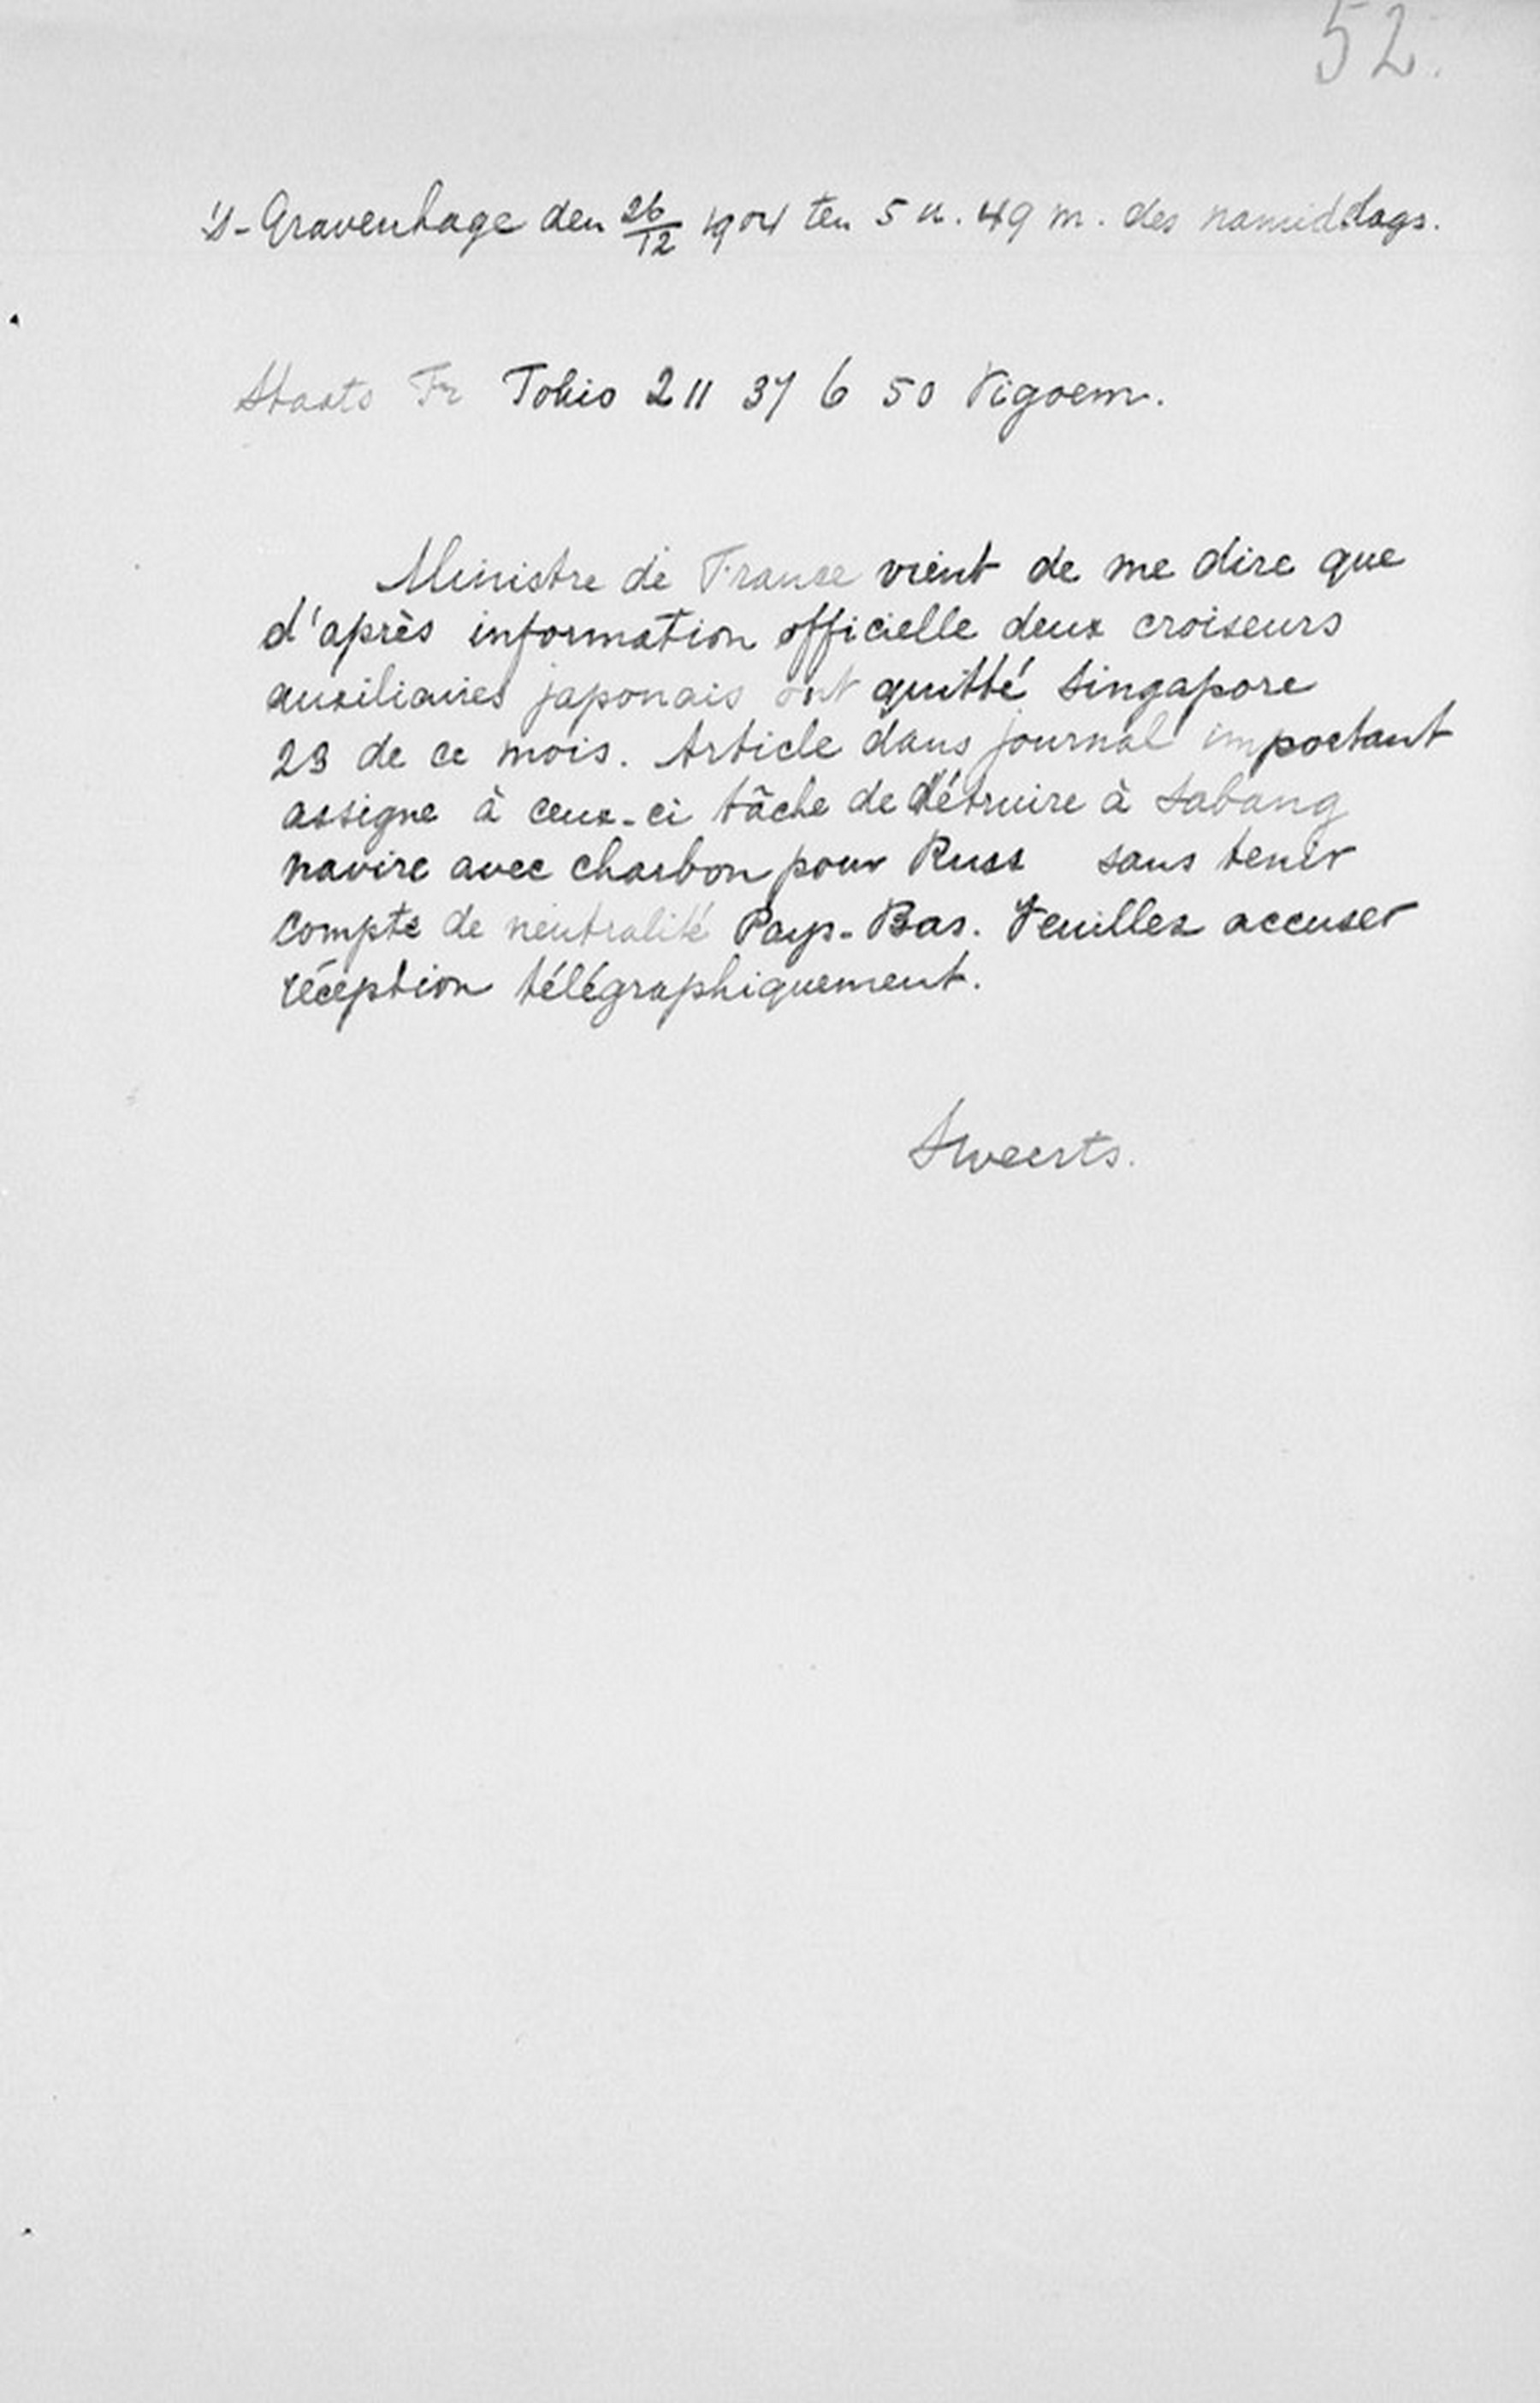 52.
's-Gravenhage den 26/12 1904 ten 5 u. 49 m. des namiddags.
Staats Fr Tokio 211 37 6 50 Vigoem.
Ministre de France vient de me dire que
d'après information officielle deux croiseurs
auxiliaires japonais ont quitté Singapore
23 de ce mois. Article dans journal important
assigne à ceux-ci tâche de détruire à Sabang
navire avec charbon pour Russ sans tenir
compte de neutralité Pays-Bas. Veuillez accuser
réception télégraphiquement.
Sweerts.